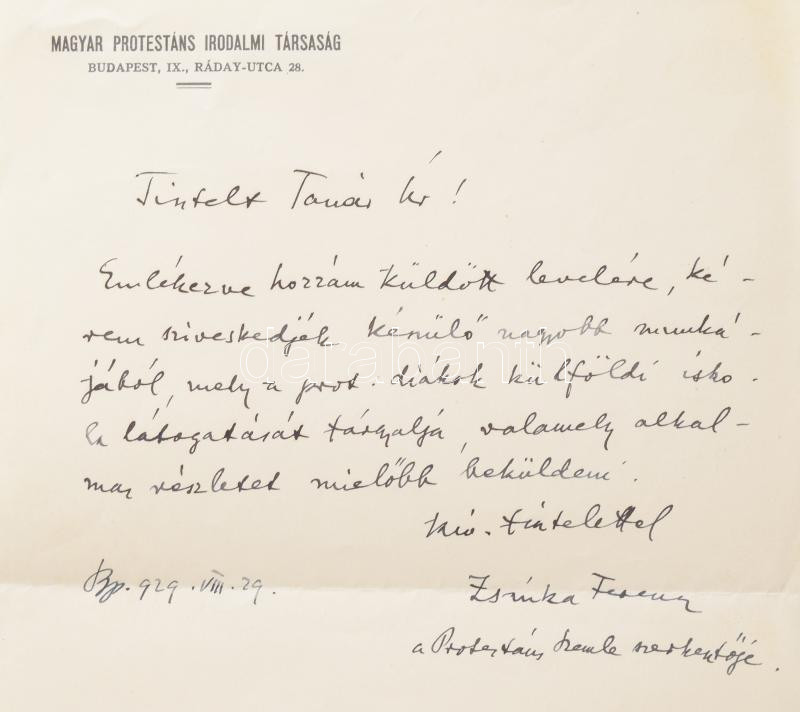 MAGYAR PROTESTÁNS IRODALMI TÁRSASÁG
BUDAPEST, IX., RÁDAY-UTCA 28.
Tisztelt Tanár Úr!
Emlékezve hozzám küldött levelére, ké-
rem sziveskedjék készülő nagyobb munká-
jából, mely a prot. diákok külföldi isko-
la látogatását tárgyalja, valamely alkal-
mas részletet mielőbb beküldeni.
kiv. tisztelettel
Bp. 929. VIII. 29.
Zsinka Ferenc
a Protestáns Szemle szerkesztője.
darabanth